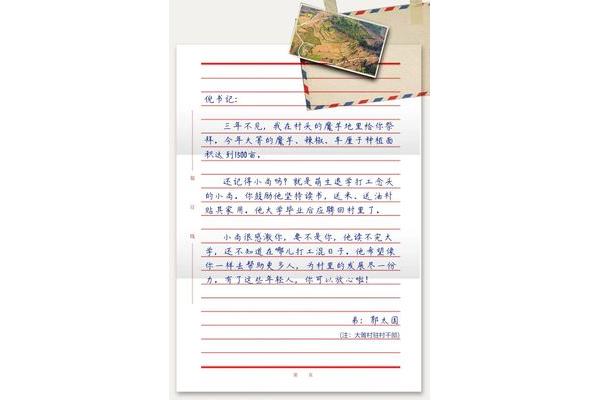 倪书记：
三年不见，我在村头的魔芋地里给你祭
拜。今年大箐的魔芋、辣椒、车厘子种植面
积达到1500亩。
还记得小尚吗？就是萌生退学打工念头
的小尚。你鼓励他坚持读书，送米、送油补
贴其家用。他大学毕业后应聘回村里了。
小尚很感激你，要不是你，他读不完大
学，还不知道在哪儿打工混日子。他希望像
你一样去帮助更多人，为村里的发展尽一份
力。有了这些年轻人，你可以放心啦！
弟：郭太国
(注：大箐村驻村干部)
装
订
线
第 页